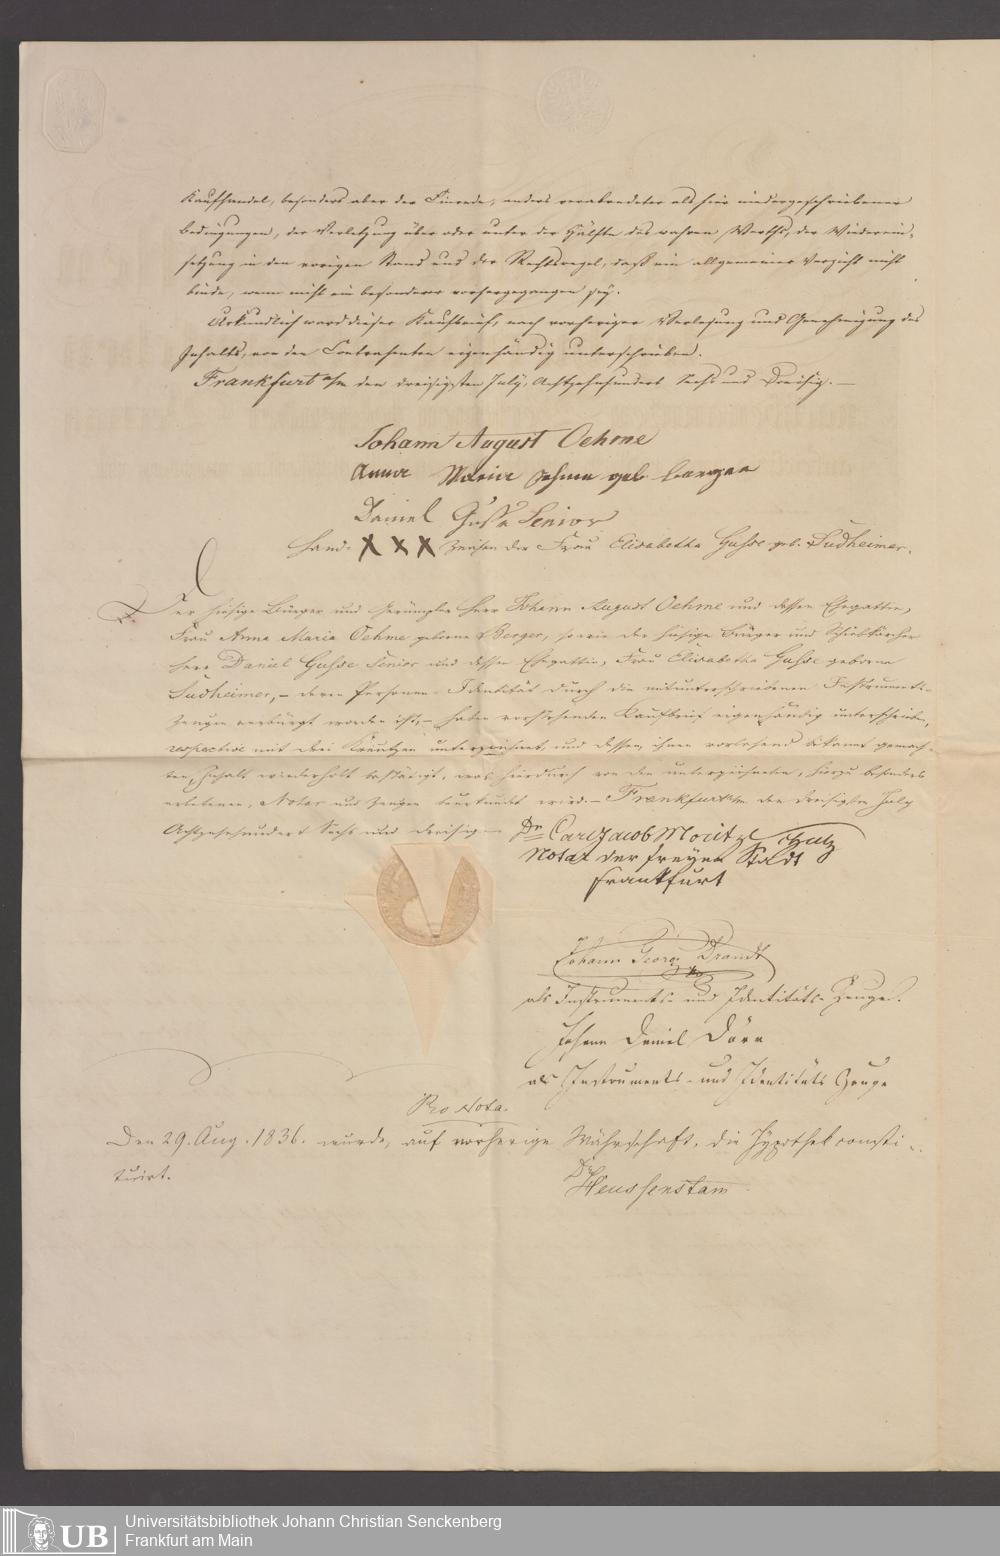 Kaufhandel, besonders aber der Einrede, anders verabredeter als hier niedergeschriebener
Bedingungen, der Verletzung über oder unter der Hälfte des wahren Werths, der Wiederein-
setzung in den vorigen Stand und der Rechtsregel, daß ein allgemeiner Verzicht nicht
binde, wenn nicht ein besonderer vorhergegangen sey.
Urkundlich ward dieser Kaufbrief, nach vorheriger Verlesung und Genehmigung des
Inhalts, von den Contrahenten eigenhändig unterschrieben.
Frankfurt a/m den dreisigsten July, Achtzehnhundert Sechs und Dreisig. —
Johann August Oehme
Anna Maria Oehme geb. Berger
Daniel Guhse Senior
Hand- X X X Zeichen der Frau Elisabetha Guhse geb. Sudheimer.
Der hiesige Bürger und Herr Johann August Oehme und dessen Ehegattin,
Frau Anna Maria Oehme geborne Berger, sowie der hiesige Bürger und Schiebkärcher
Herr Daniel Guhse Senior und dessen Ehegattin, Frau Elisabetha Guhse geborne
Sudheimer, – deren Personen-Identität durch die mitunterschriebenen Instruments-
zeugen verbürgt worden ist, – haben vorstehenden Kaufbrief eigenhändig unterschrieben,
respective mit drei Kreutzen unterzeichnet, und dessen, ihnen vorlesend bekannt gemach-
ten, Inhalt wiederholt bestätigt, was hierdurch von den unterzeichneten, hierzu besonders
erbetenen, Notar und Zeugen beurkundet wird. – Frankfurt a/m den dreisigsten July
Achtzehnhundert Sechs und dreisig –
Dr. Carl Jacob Moritz
Notar der freyen Stadt
Frankfurt
Johann Georg Brandt
als Instruments- und Identitäts-Zeuge.
Johann Daniel Dörr
als Instruments- und Identitäts Zeuge
Pro Nota.
Den 29. Aug. 1836. wurde, auf vorherige Währschaft, die Hypothek consti-
tuirt.
Dr. Heussenstam
UB
Universitätsbibliothek Johann Christian Senckenberg
Frankfurt am Main